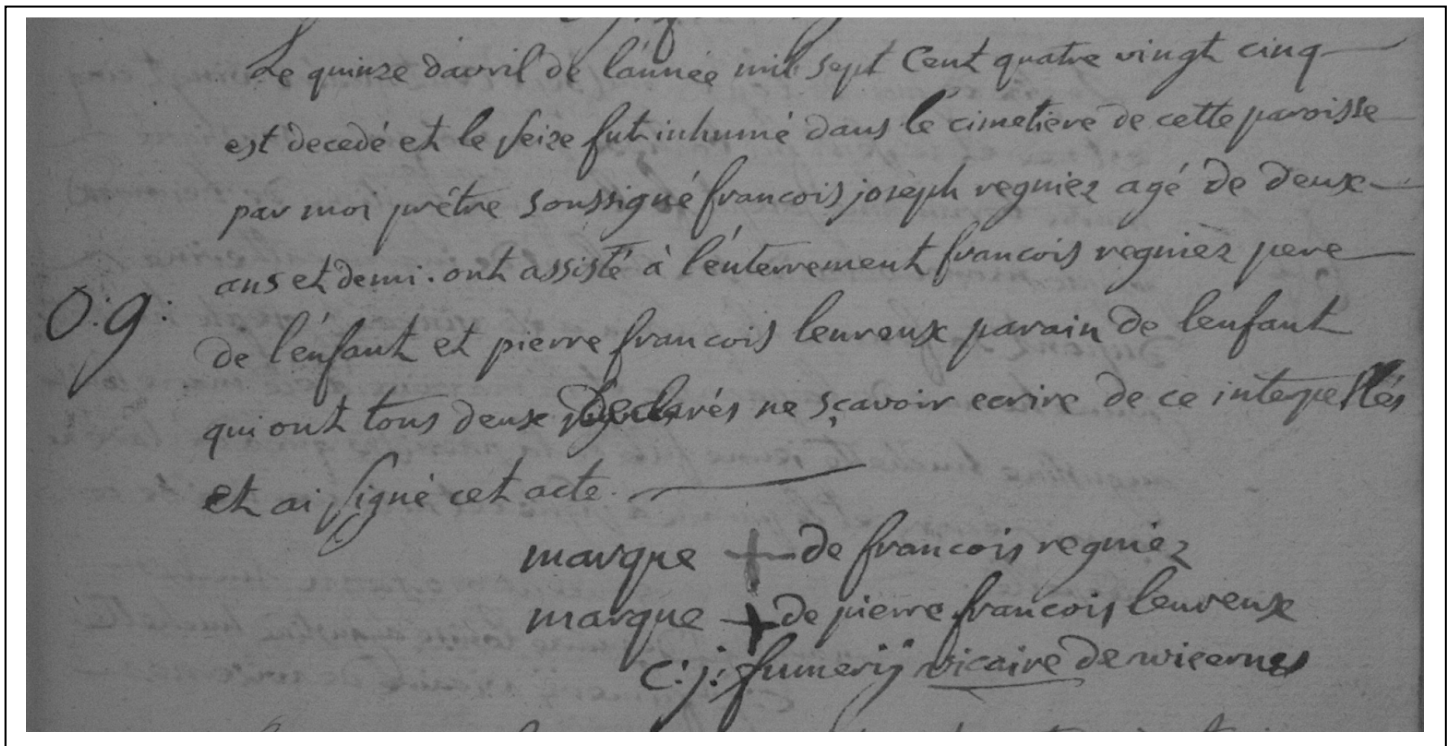 Le quinze davril de lánnée mil sept Cent quatre vingt cinq
est decedé et le seize fut inhumé dans le cimetiere de cette paroisse
par moi prêtre soussigné francois joseph regniez agé de deux
ans et demi. ont assisté à lénterrement francois regniez pere
O:9:
de lénfant et pierre francois leureux parain de lenfant
qui ont tous deux declarés ne sçavoir ecrire de ce interpellés
et ai signé cet acte.
marque + de francois regniez
marque + de pierre francois leureux
C: j: fumerij vicaire de wicernes